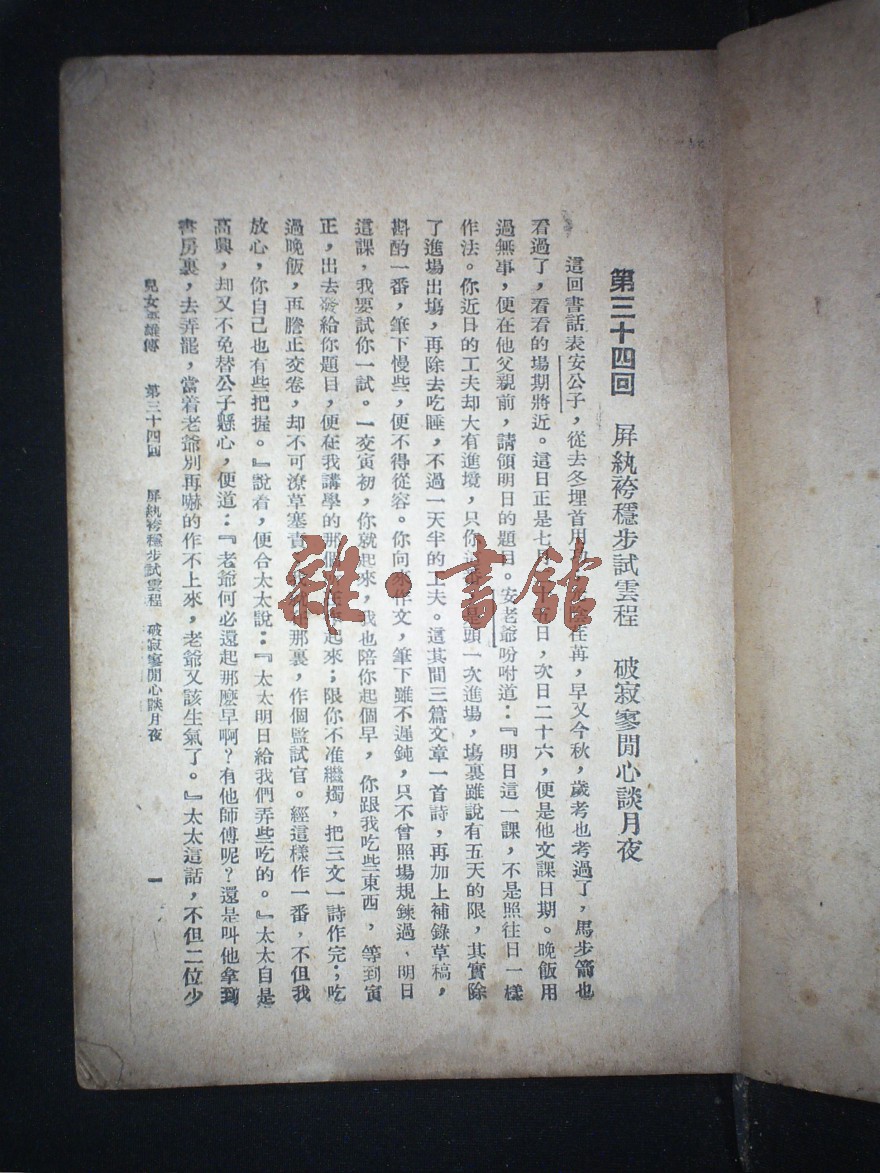 第三十四回　屏紈袴穩步試雲程　破寂寥閒心談月夜
這回書話表安公子，從去冬埋首用在苒，早又今秋，歲考也考過了，馬步箭也
看過了，看看的場期將近。這日正是七月日，次日二十六，便是他文課日期。晚飯用
過無事，便在他父親前，請領明日的題目。安老爺吩咐道：『明日這一課，不是照往日一樣
作法。你近日的工夫却大有進境，只你頭一次進場，塲裏雖說有五天的限，其實除
了進場出塲，再除去吃睡，不過一天半的工夫。這其間三篇文章一首詩，再加上補錄草稿，
斟酌一番，筆下慢些，便不得從容。你向來作文，筆下雖不遲鈍，只不曾照場規鍊過，明日
這課，我要試你一試。一交寅初，你就起來，我也陪你起個早，你跟我吃些東西，等到寅
正，出去發給你題目，便在我講學的那個起來；限你不准繼燭，把三文一詩作完；吃
過晚飯，再謄正交卷，却不可潦草塞責那裏，作個監試官。經這樣作一番，不但我
放心，你自己也有些把握。』說着，便合太太說：『太太明日給我們弄些吃的。』太太自是
高興，却又不免替公子懸心，便道：『老爺何必還起那麼早啊？有他師傅呢？還是叫他拿到
書房裏，去弄罷，當着老爺別再嚇的作不上來，老爺又該生氣了。』太太這話，不但二位少
兒女英雄傳　第三十四回　屏紈袴穩步試雲程　破寂寥閒心談月夜　一
雜·書館